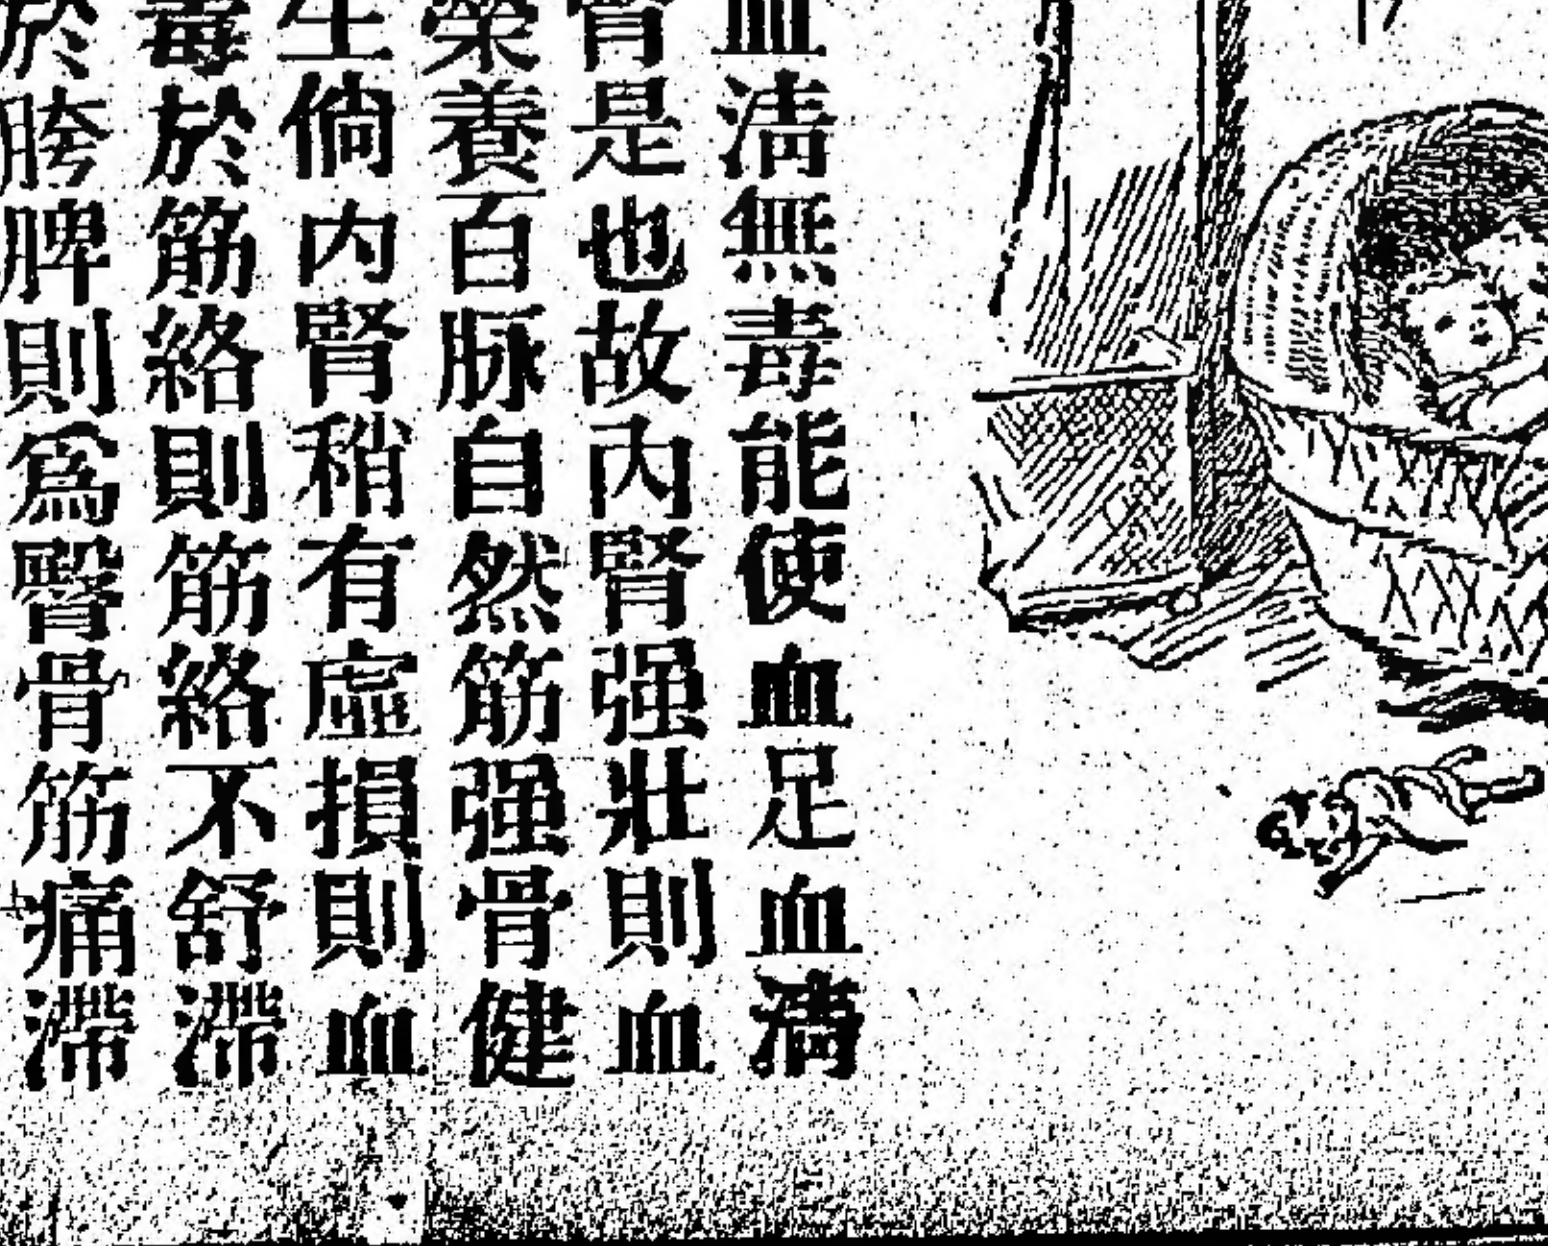 血淸無毒能使血足血淸
腎是也故內腎强壯則血
榮養百脉自然筋强骨健
生倘內腎稍有虛損則血
毒於筋絡則筋絡不舒滯
於胯脾則爲臀骨筋痛滯